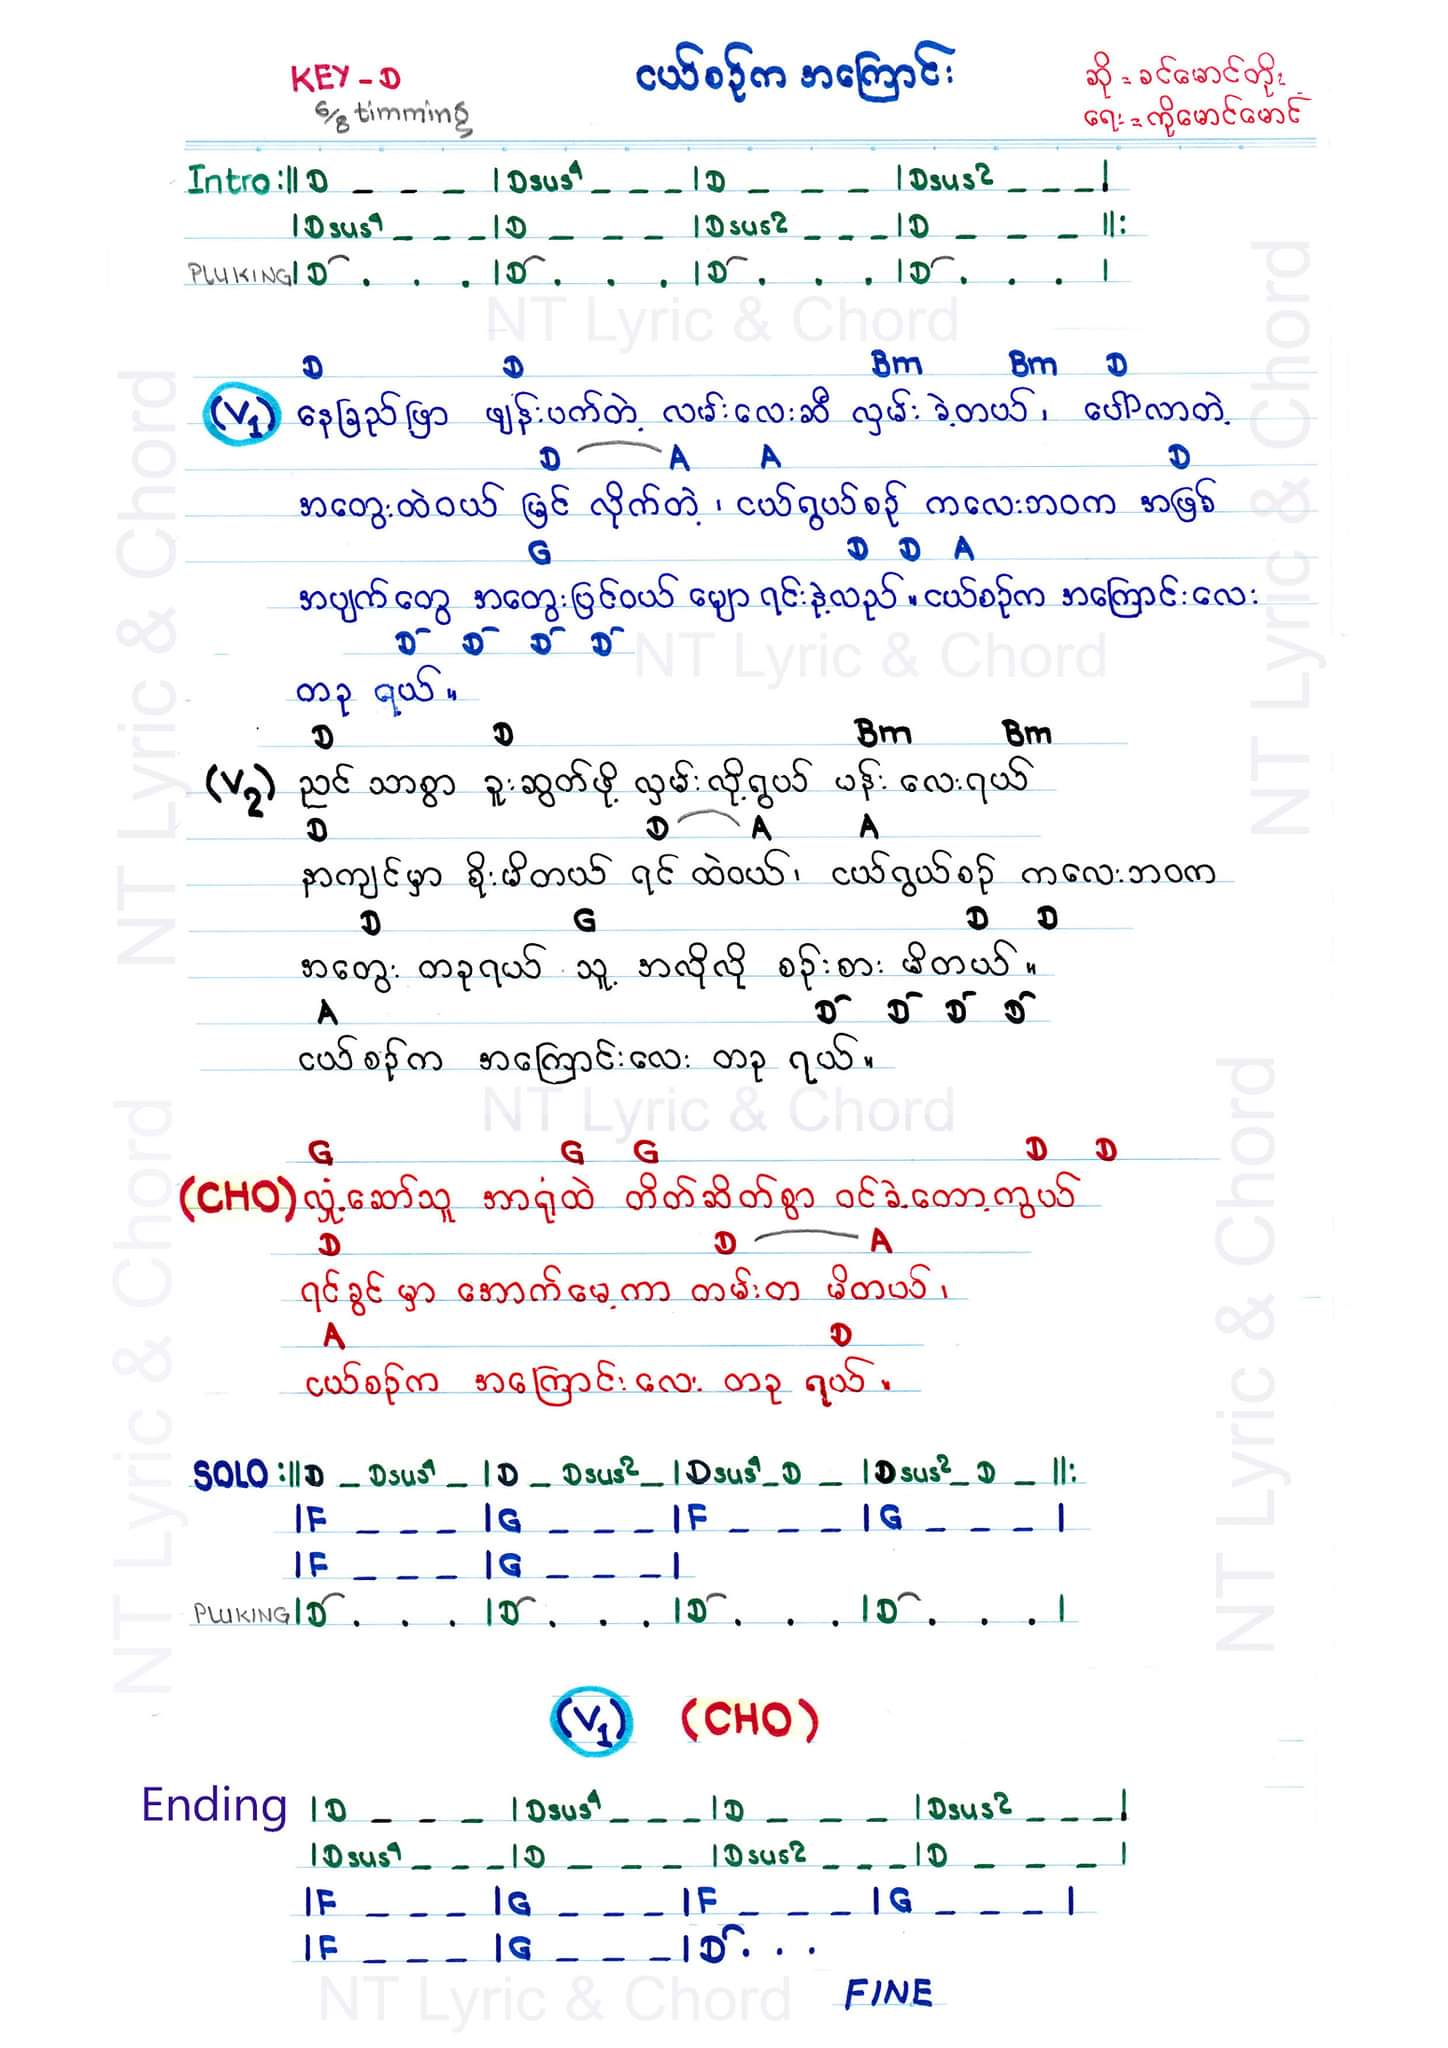 KEY - D
6/8 timming
ငယ်စဉ်က အကြောင်း
ဆို = ခင်မောင်တိုး
ရေး = ကိုမောင်မောင်
Intro :|| D _ _ _ | Dsus4 _ _ _ | D _ _ _ | Dsus2 _ _ _ |
| Dsus4 _ _ _ | D _ _ _ | Dsus2 _ _ _ | D _ _ _ ||:
PLUKING | D . . . | D . . . | D . . . | D . . . |
NT Lyric & Chord
D D Bm Bm D
(V1) နေခြည်ဖြာ ဖျန်းပက်တဲ့ လမ်းလေးဆီ လှမ်းခဲ့တယ်၊ ပေါ်လာတဲ့
D A A D
အတွေးထဲဝယ် မြင်လိုက်တဲ့၊ ငယ်ရွယ်စဉ် ကလေးဘဝက အဖြစ်
G D D A
အပျက်တွေ အတွေးဖြင့်ဝယ် မျှော ရင်းနဲ့လည်။ ငယ်စဉ်က အကြောင်းလေး
D D D D
NT Lyric & Chord
တခု ရယ်။
D D Bm Bm
(V2) ညင်သာစွာ ခူးဆွတ်ဖို့ လှမ်းလို့ရွယ် ပန်းလေးရယ်
D D A A
နာကျင်မှာ စိုးမိတယ် ရင်ထဲဝယ်၊ ငယ်ရွယ်စဉ် ကလေးဘဝက
D G D D
အတွေး တခုရယ် သူ့ အလိုလို စဉ်းစားမိတယ်။
A D D D D
ငယ်စဉ်က အကြောင်းလေး တခု ရယ်။
NT Lyric & Chord
G G G D D
(CHO) လှုံ့ဆော်သူ အာရုံထဲ တိတ်ဆိတ်စွာ ဝင်ခဲ့တော့ကွယ်
D D A
ရင်ခွင်မှာ အောက်မေ့ကာ တမ်းတ မိတယ်၊
A D
ငယ်စဉ်က အကြောင်းလေး တခု ရယ်။
SOLO :|| D _ Dsus4 _ | D _ Dsus2 _ | Dsus4 _ D _ | Dsus2 _ D _ ||:
| F _ _ _ | G _ _ _ | F _ _ _ | G _ _ _ |
| F _ _ _ | G _ _ _ |
PLUKING | D . . . | D . . . | D . . . | D . . . |
(V1) (CHO)
Ending | D _ _ _ | Dsus4 _ _ _ | D _ _ _ | Dsus2 _ _ _ |
| Dsus4 _ _ _ | D _ _ _ | Dsus2 _ _ _ | D _ _ _ |
| F _ _ _ | G _ _ _ | F _ _ _ | G _ _ _ |
| F _ _ _ | G _ _ _ | D . . .
FINE
NT Lyric & Chord
NT Lyric & Chord
NT Lyric & Chord
NT Lyric & Chord
NT Lyric & Chord